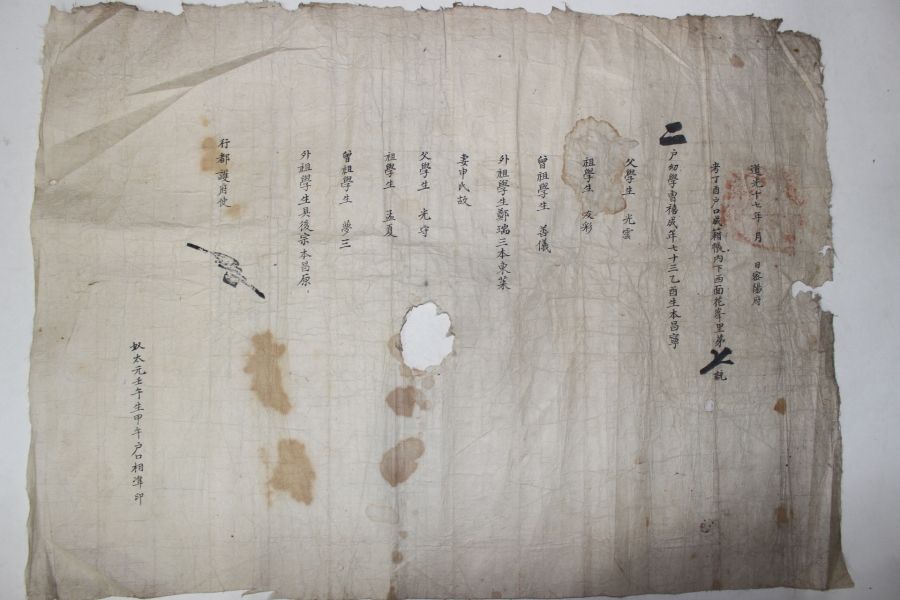 道光十七年 月 日密陽府
考丁酉戶口成籍帳內下西面花峯里第
統
二戶幼學曺禧成年七十三乙酉生本昌寧
父學生 光雲
祖學生 友彩
曾祖學生 善儀
外祖學生鄭瑞三本東萊
妻申氏故
父學生 光守
祖學生 孟夏
曾祖學生 夢三
外祖學生具後宗本昌原
行都護府使
奴太元壬午生甲午戶口相準印